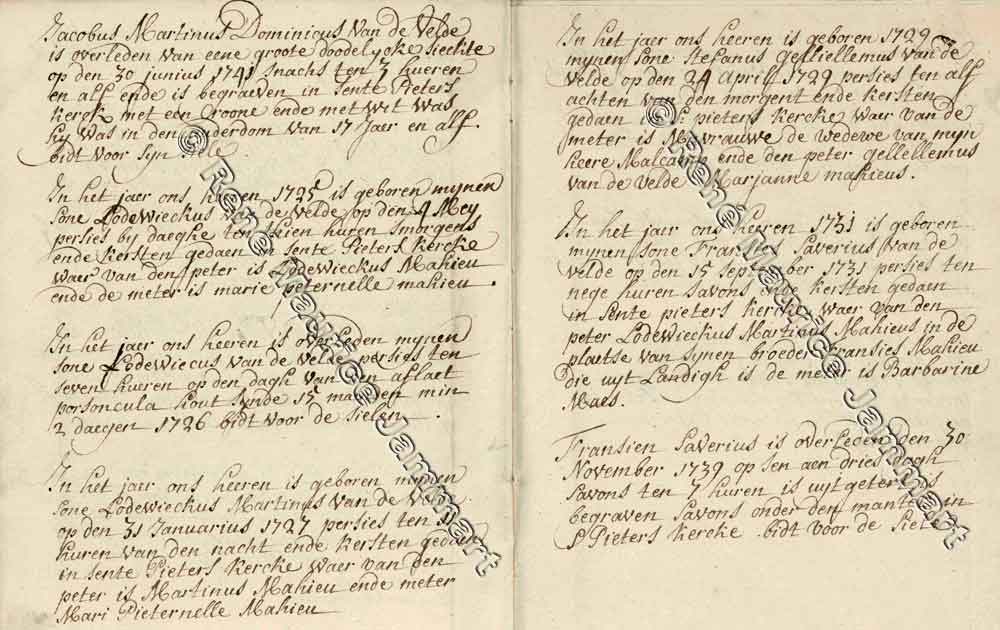 Jacobus Martinus Dominicus van de Velde
is overleden van eene groote doodelycke sieckte
op den 30 junius 1741 snachts ten 3 hueren
en alf ende is begraeven in sente Pieters
kerck met een croone ende met wit was
hy was in den ouderdom van 17 jaer en alf.
bidt voor syn siele
In het jaer ons heeren 1725 is geboren mynen
sone Lodewieckus van de Velde op den 4 Mey
persies by daeghe ten thien huren smorgens
ende kersten gedaen in sente Pieters kercke
waer van den peter is Lodewieckus Mahieu
ende de meter is marie peternelle mahieu
In het jaer ons heeren is overleden mynen
sone Lodewiecus van de Velde persies ten
seven hueren op den dagh van den aflaet
porsoncula hout synde 15 maenden min
2 daegen 1726 bidt voor de sielen
In het jaer ons heeren is geboren mynen
sone Lodewieckus Martinus van de Velde
op den 31 Januarius 1727 persies ten
huren van den nacht ende kersten gedaen
in sente Pieters kercke waer van den
peter is Martinus Mahieu ende meter
Mari Pieternelle Mahieu
In het jaer ons heeren is geboren 1729
mynen sone Stefanus gelliellemus van de
Velde op den 24 April 1729 persies ten alf
achten van den morgent ende kersten
gedaen pieters kercke waer van de
meter is Mevrauwe de wedewe van myn
heere Malcamp ende den peter gellellemus
van de Velde Marjanne mahieus.
In het jaer ons heeren 1731 is geboren
mynen sone Fransies Saverius van de
Velde op den 15 september 1731 persies ten
nege huren savons ende kersten gedaen
in sente pieters kercke waer van den
peter Lodewieckus Martinus Mahieus in de
plaetse van synen broeder Fransies Mahieu
die uyt Landigh is de meter is Barbarine
Maes.
Fransien Saverius is overleden den 30
November 1739 op sen aen dries dagh
savons ten 7 huren is uytgeter
begraven savons onder den mantel in
S Pieters kercke bidt voor de siel
© René Maurice Jammart
© René Maurice Jammart